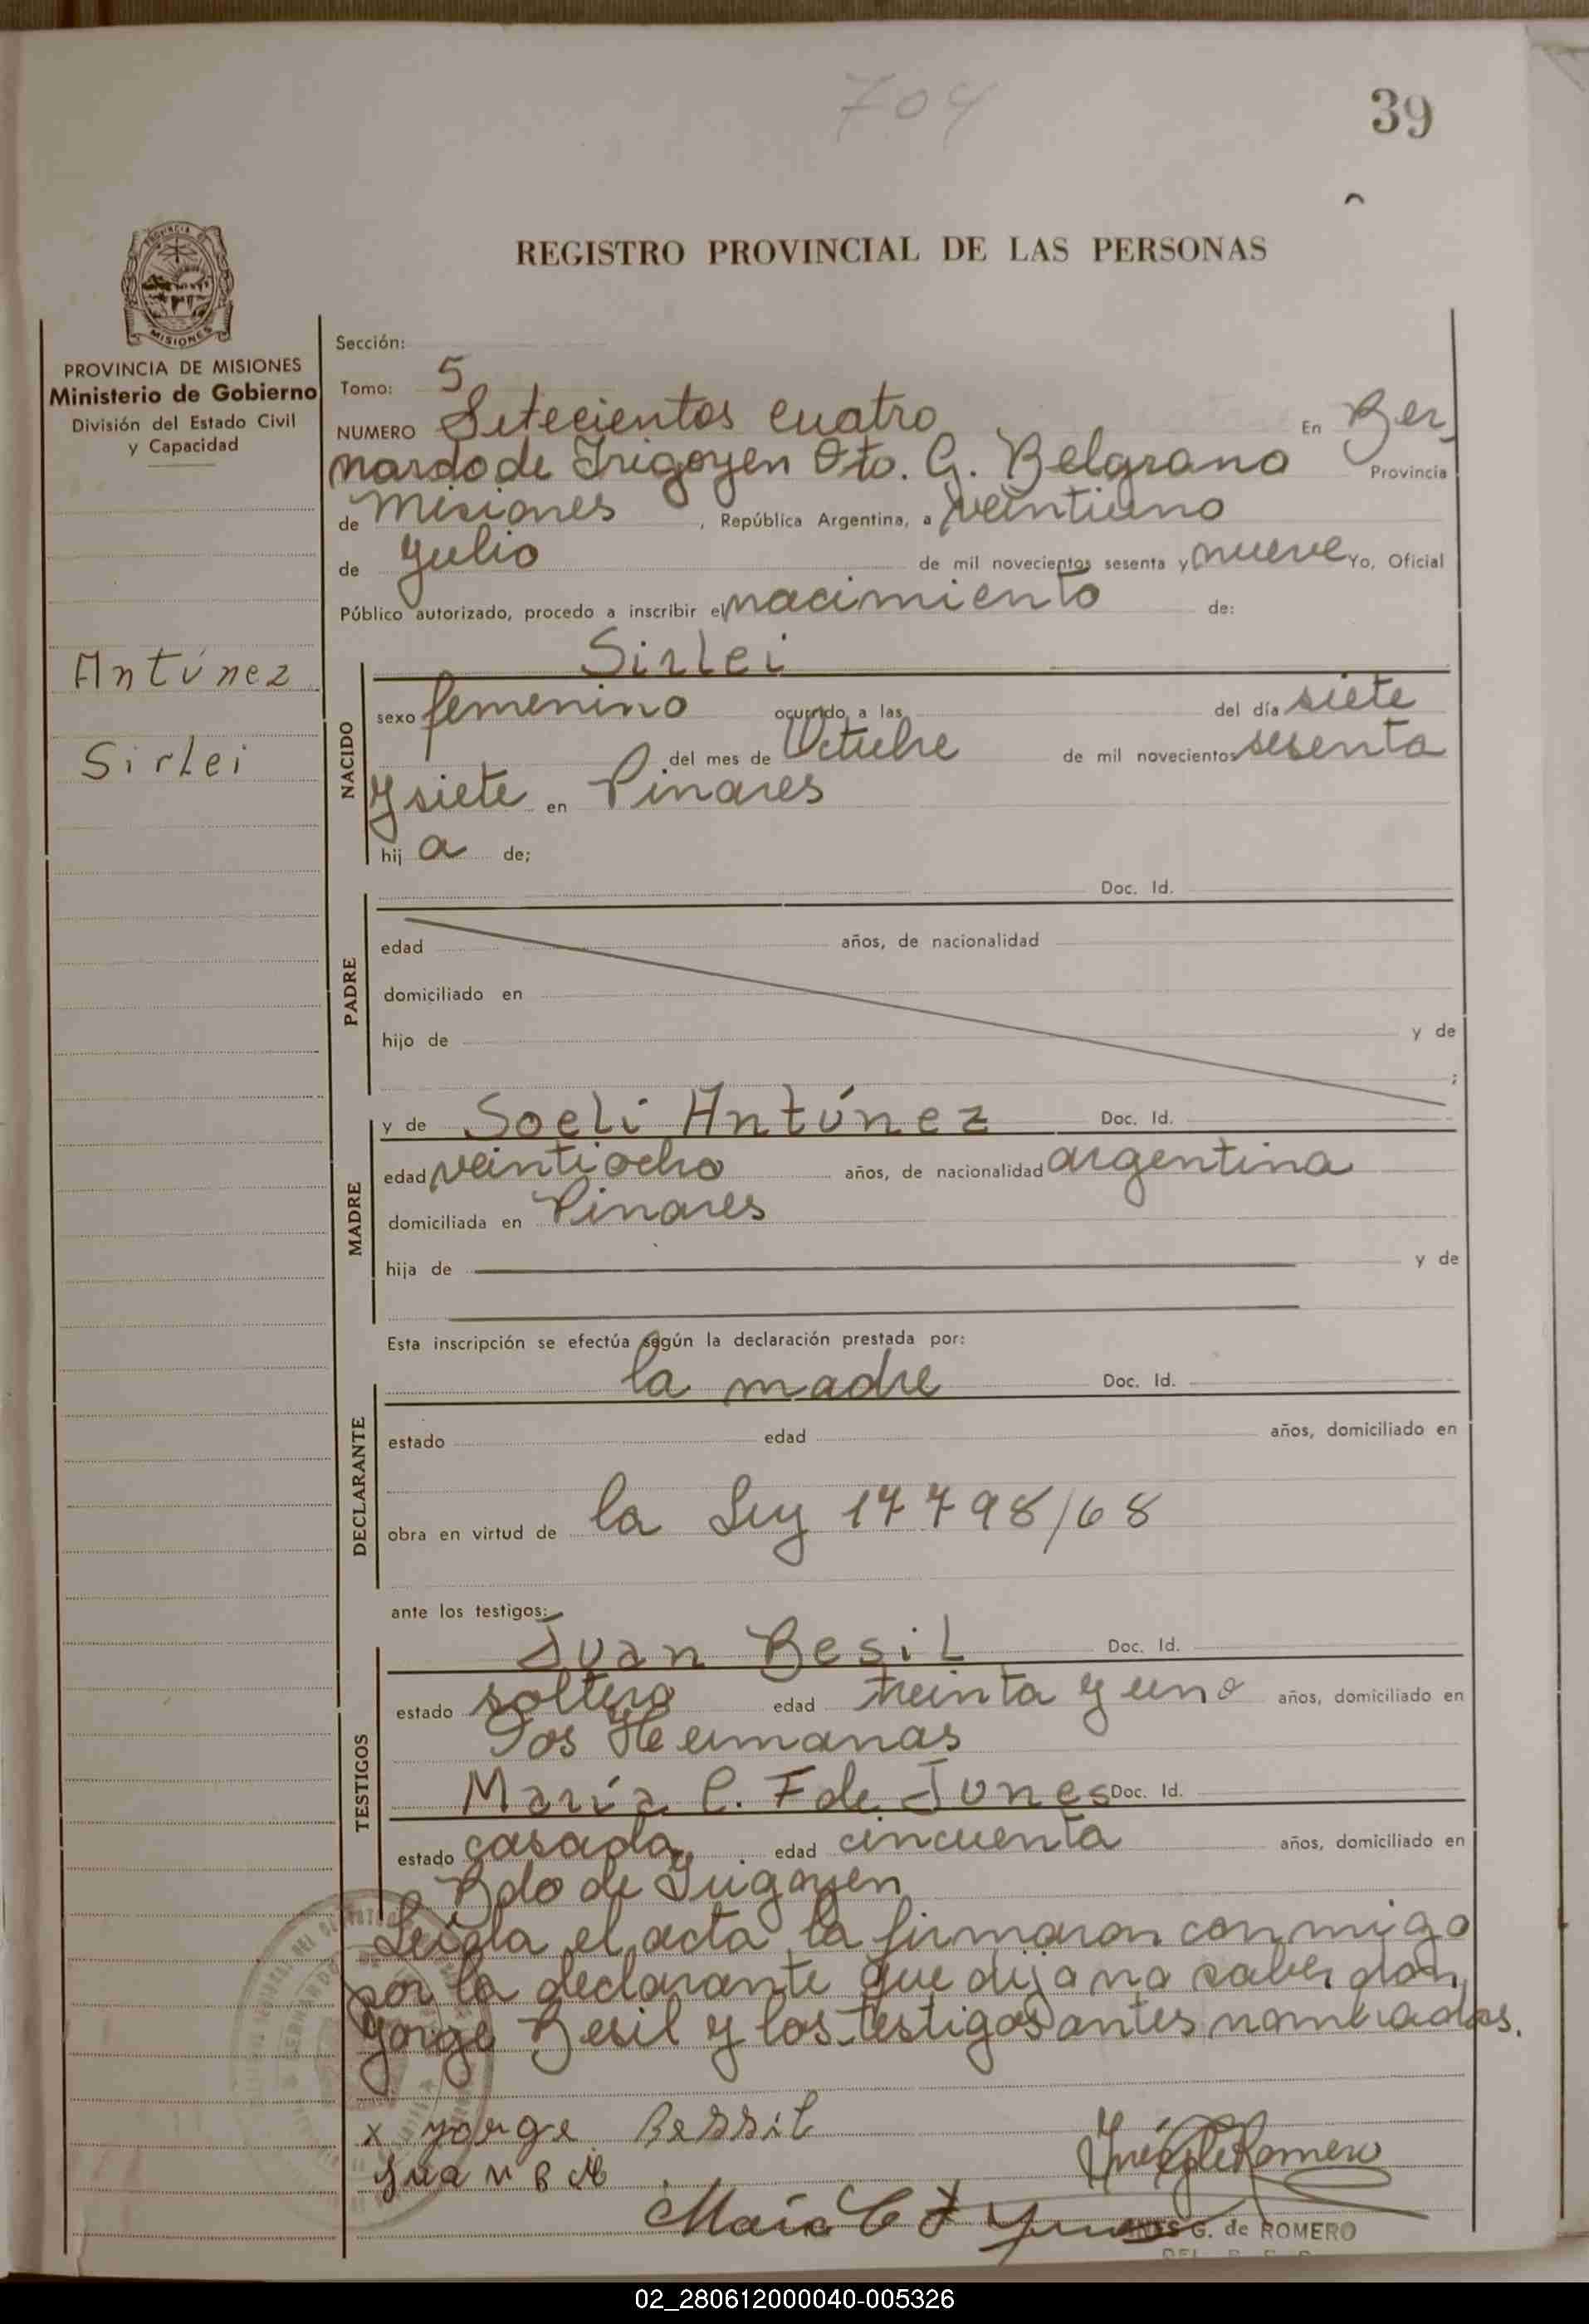 704
39
REGISTRO PROVINCIAL DE LAS PERSONAS
PROVINCIA DE MISIONES
Ministerio de Gobierno
División del Estado Civil
y Capacidad
Antúnez
Sirlei
Sección:
Tomo: 5
NUMERO Setecientos cuatro En Ber
nardo de Irigoyen Dto. G. Belgrano Provincia
de Misiones, República Argentina, a veintiuno
de Julio de mil novecientos sesenta y nueve Yo, Oficial
Público autorizado, procedo a inscribir el nacimiento de:
NACIDO
Sirlei
sexo femenino ocurrido a las del día siete
del mes de Octubre de mil novecientos sesenta
y siete en Pinares
hij a de;
PADRE
Doc. Id.
edad años, de nacionalidad
domiciliado en
hijo de y de
;
MADRE
y de Soeli Antúnez Doc. Id.
edad veintiocho años, de nacionalidad argentina
domiciliada en Pinares
hija de y de
Esta inscripción se efectúa según la declaración prestada por:
DECLARANTE
la madre Doc. Id.
estado edad años, domiciliado en
obra en virtud de la Ley 17798/68
ante los testigos:
TESTIGOS
Juan Besil Doc. Id.
estado soltero edad treinta y uno años, domiciliado en
Dos Hermanas
María C. F de Junes Doc. Id.
estado casada edad cincuenta años, domiciliado en
Bdo de Irigoyen
Leida el acta la firmaron conmigo
por la declarante que dijo no saber don
Jorge Besil y los testigos antes nombrados.
x Jorge Bessil
Juan B
María C F
INES G. de ROMERO
02_280612000040-005326